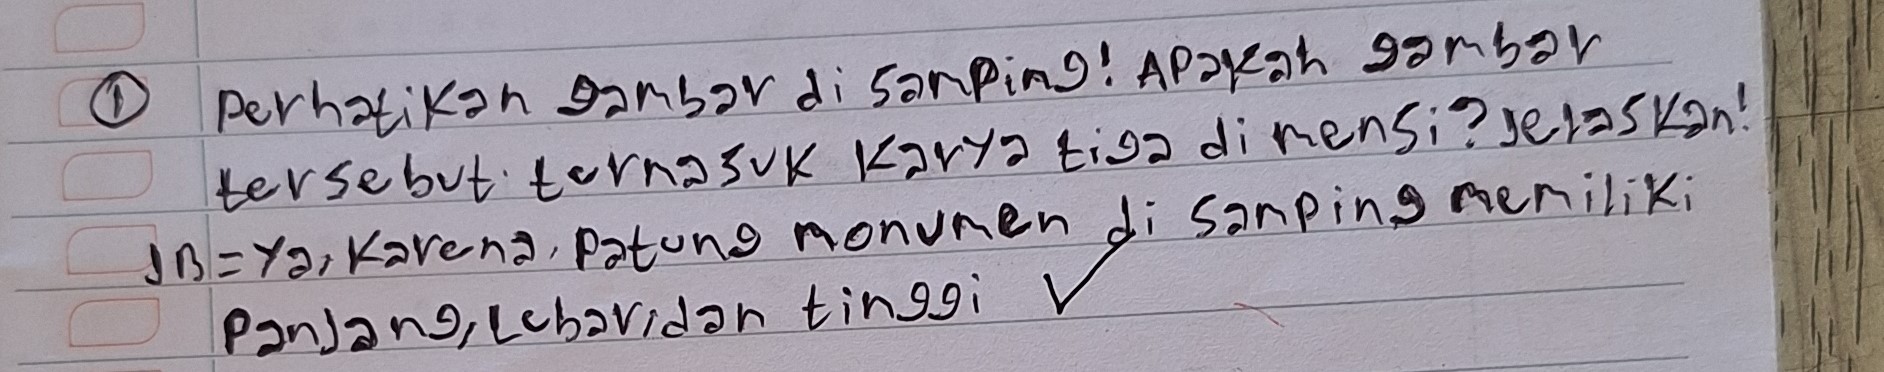 ① Perhatikan gambar di samping! Apakah gambar
tersebut termasuk karya tiga dimensi? Jelaskan!
JB = Ya, Karena, Patung monumen di samping memiliki
Panjang, Lebar, dan tinggi ✓